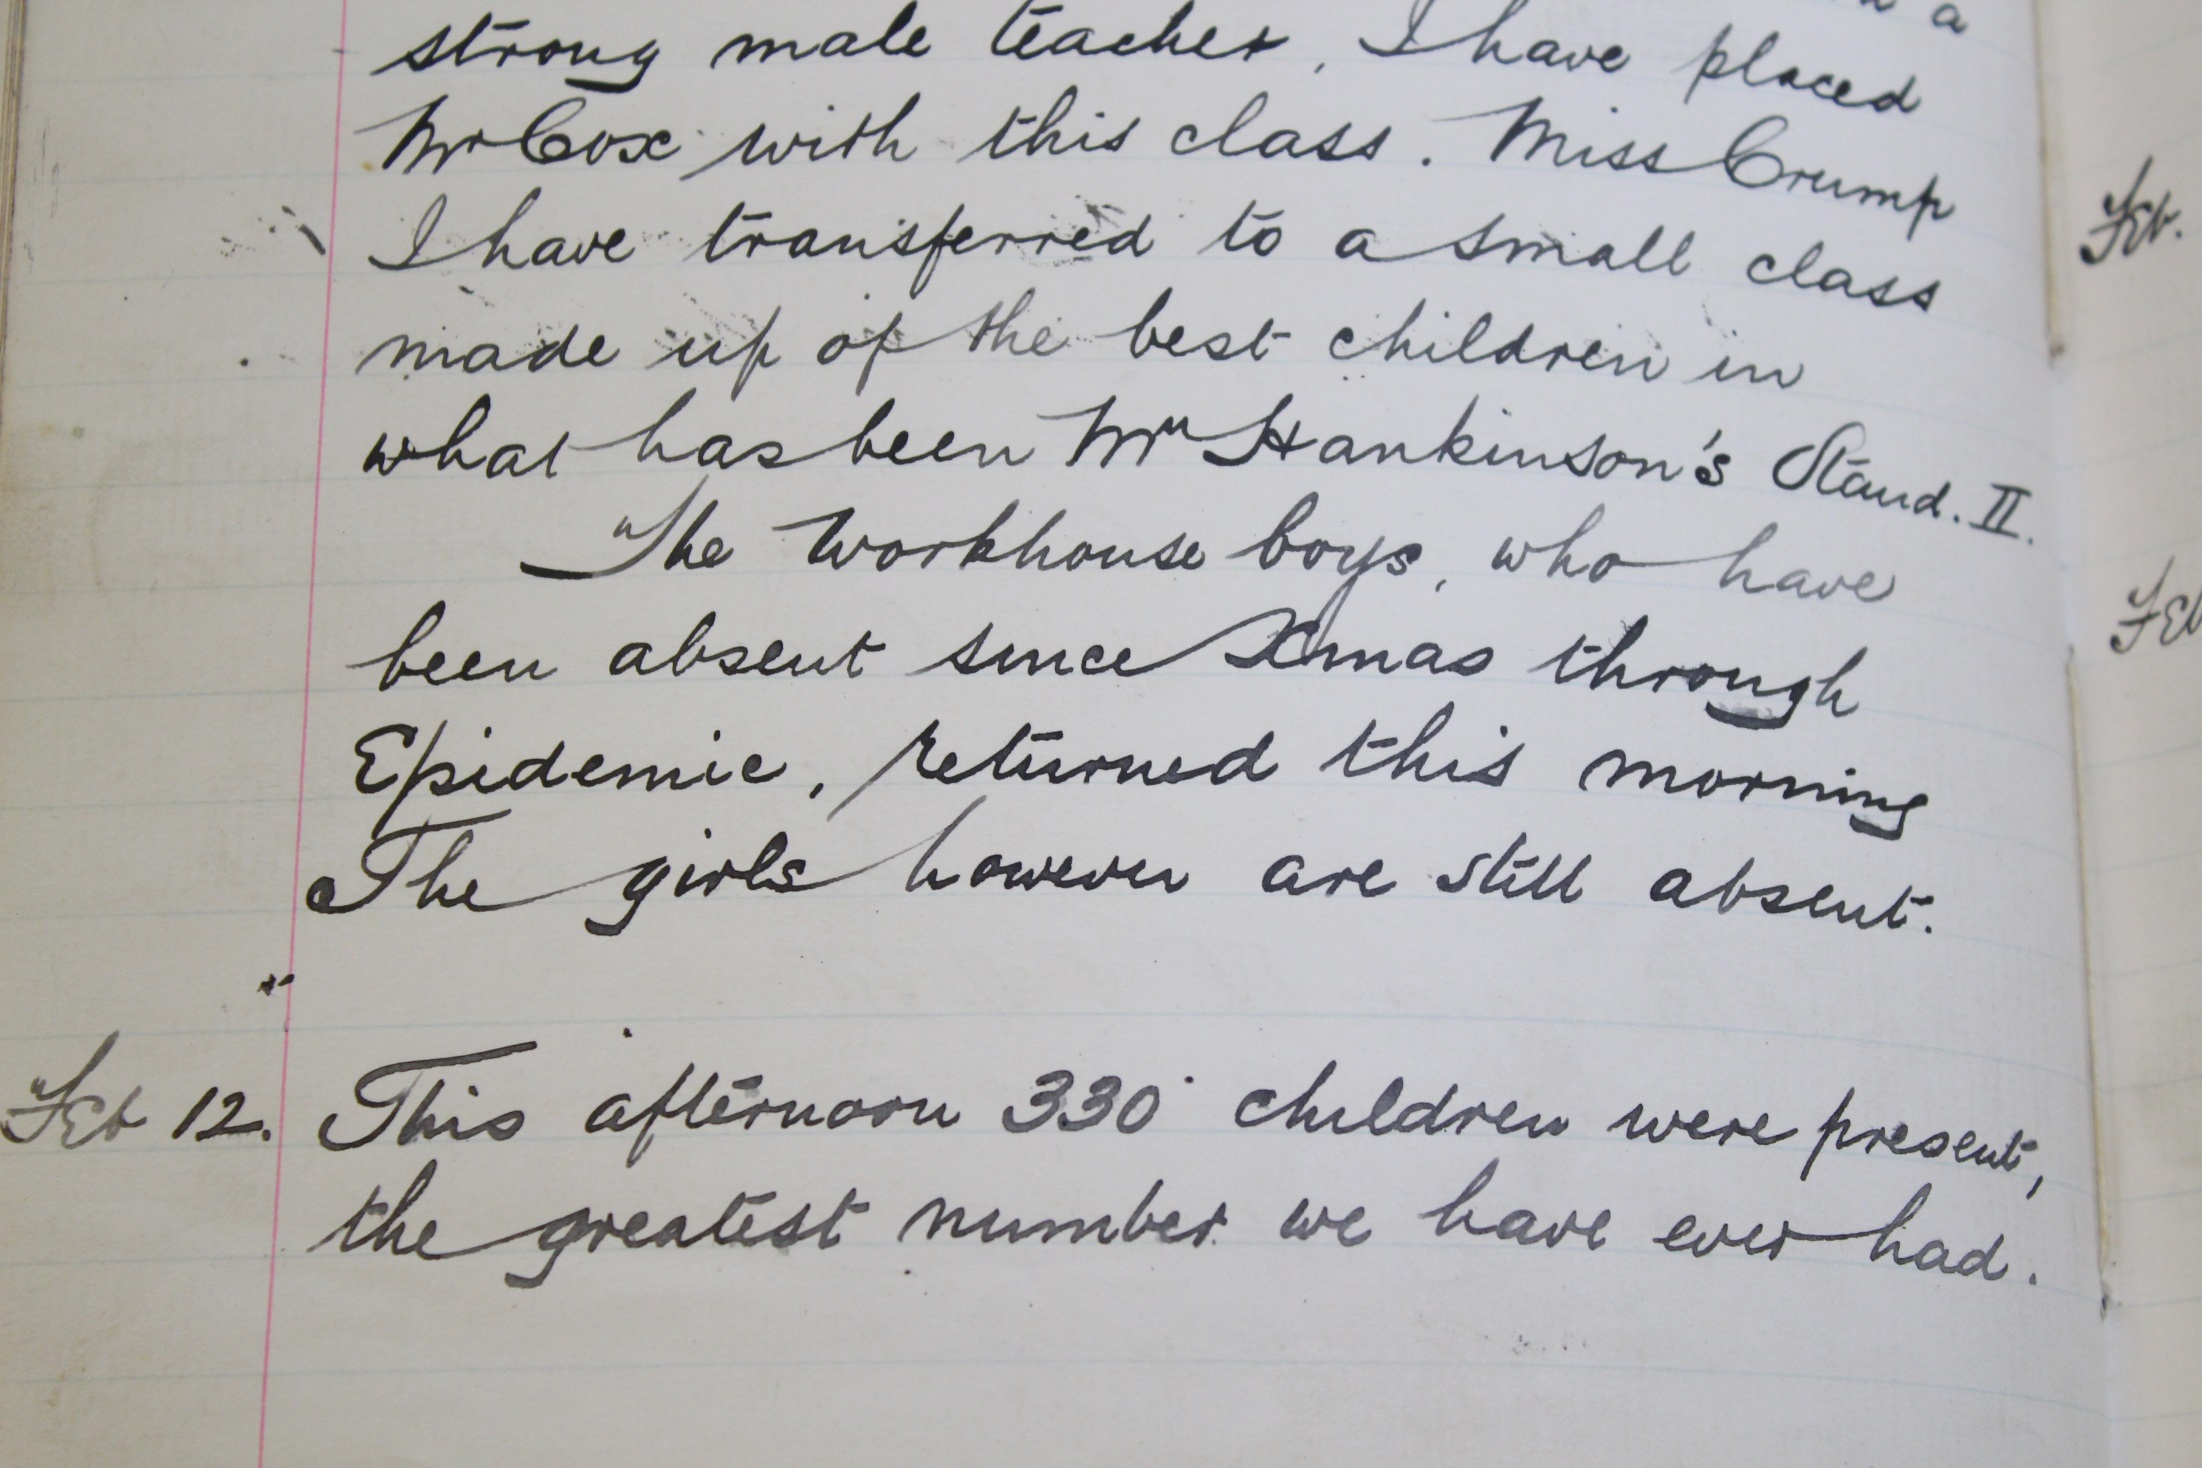 a
strong male teacher, I have placed
Mr Cox with this class. Miss Crump
I have transferred to a small class
made up of the best children in
what has been Mrs Hankinson's Stand. II.
The Workhouse boys, who have
been absent since Xmas through
Epidemic, returned this morning
The girls however are still absent.
Feb 12. This afternoon 330 children were present,
the greatest number we have ever had.
Feb.
Feb